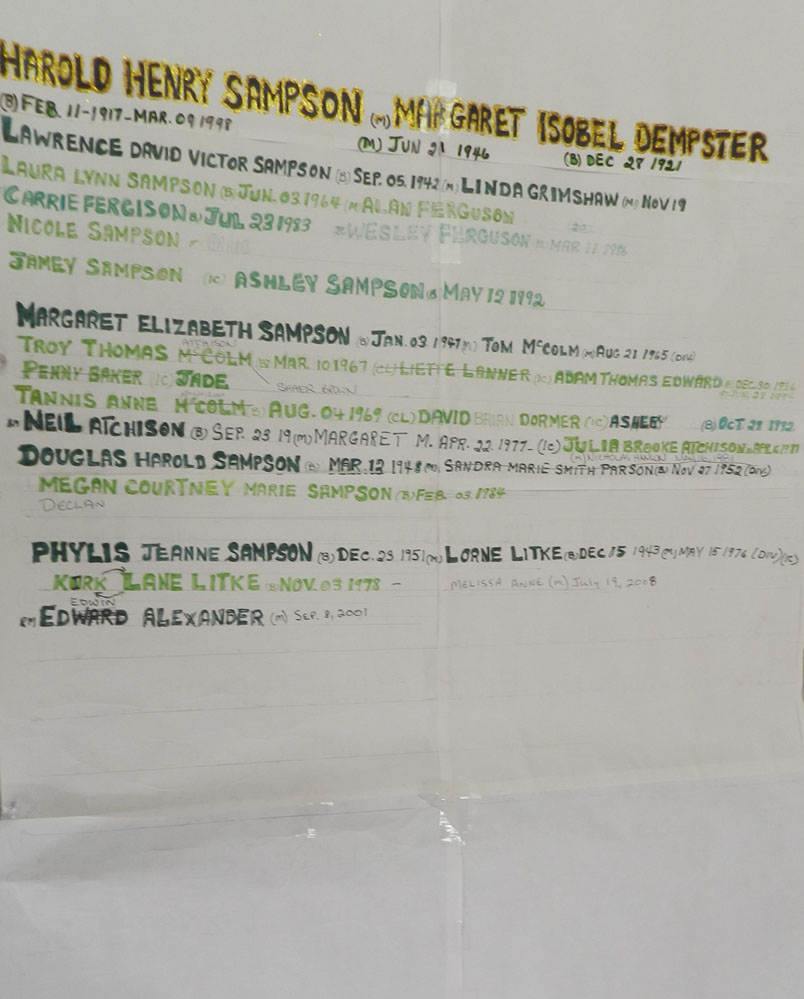 HAROLD HENRY SAMPSON (M) MARGARET ISOBEL DEMPSTER
(B) FEB. 11-1917-MAR. 09 1998 (M) JUN 21 1946 (B) DEC 27 1921
LAWRENCE DAVID VICTOR SAMPSON (B) SEP. 05. 1942 (M) LINDA GRIMSHAW (M) NOV 19
LAURA LYNN SAMPSON (B) JUN. 03. 1964 (M) ALAN FERGUSON
CARRIE FERGISON (B) JUL 23 1983 WESLEY FERGUSON MAR
NICOLE SAMPSON
JAMEY SAMPSON (IC) ASHLEY SAMPSON (B) MAY 12 1992
MARGARET ELIZABETH SAMPSON (B) JAN. 03. 1947 (M) TOM McCOLM (M) AUG 21 1965 (DIV)
ATCHISON
TROY THOMAS McCOLM (B) MAR. 10 1967 (CL) LIETTE LANNER (IC) ADAM THOMAS EDWARD (B) DEC. 30
PENNY BAKER (IC) JADE
TANNIS ANNE McCOLM (B) AUG. 04 1969 (CL) DAVID BRIAN DORMER (IC) ASHLEY (B) OCT 29 1992
NEIL ATCHISON (B) SEP. 23 19 (M) MARGARET M. APR. 22. 1977- (IC) JULIA BROOKE ATCHISON
DOUGLAS HAROLD SAMPSON (B) MAR. 12 1948 (M) SANDRA MARIE SMITH PARSON (B) NOV 27 1952 (DIV)
MEGAN COURTNEY MARIE SAMPSON (B) FEB. 03. 1984
DECLAN
PHYLIS JEANNE SAMPSON (B) DEC. 29 1951 (M) LORNE LITKE (B) DEC 15 1943 (M) MAY 15 1976 (DIV) (IC)
KIRK LANE LITKE (B) NOV. 03 1978 - MELISSA ANNE (M) July 19, 2008
EDWIN
EDWARD ALEXANDER (M) SEP. 8, 2001